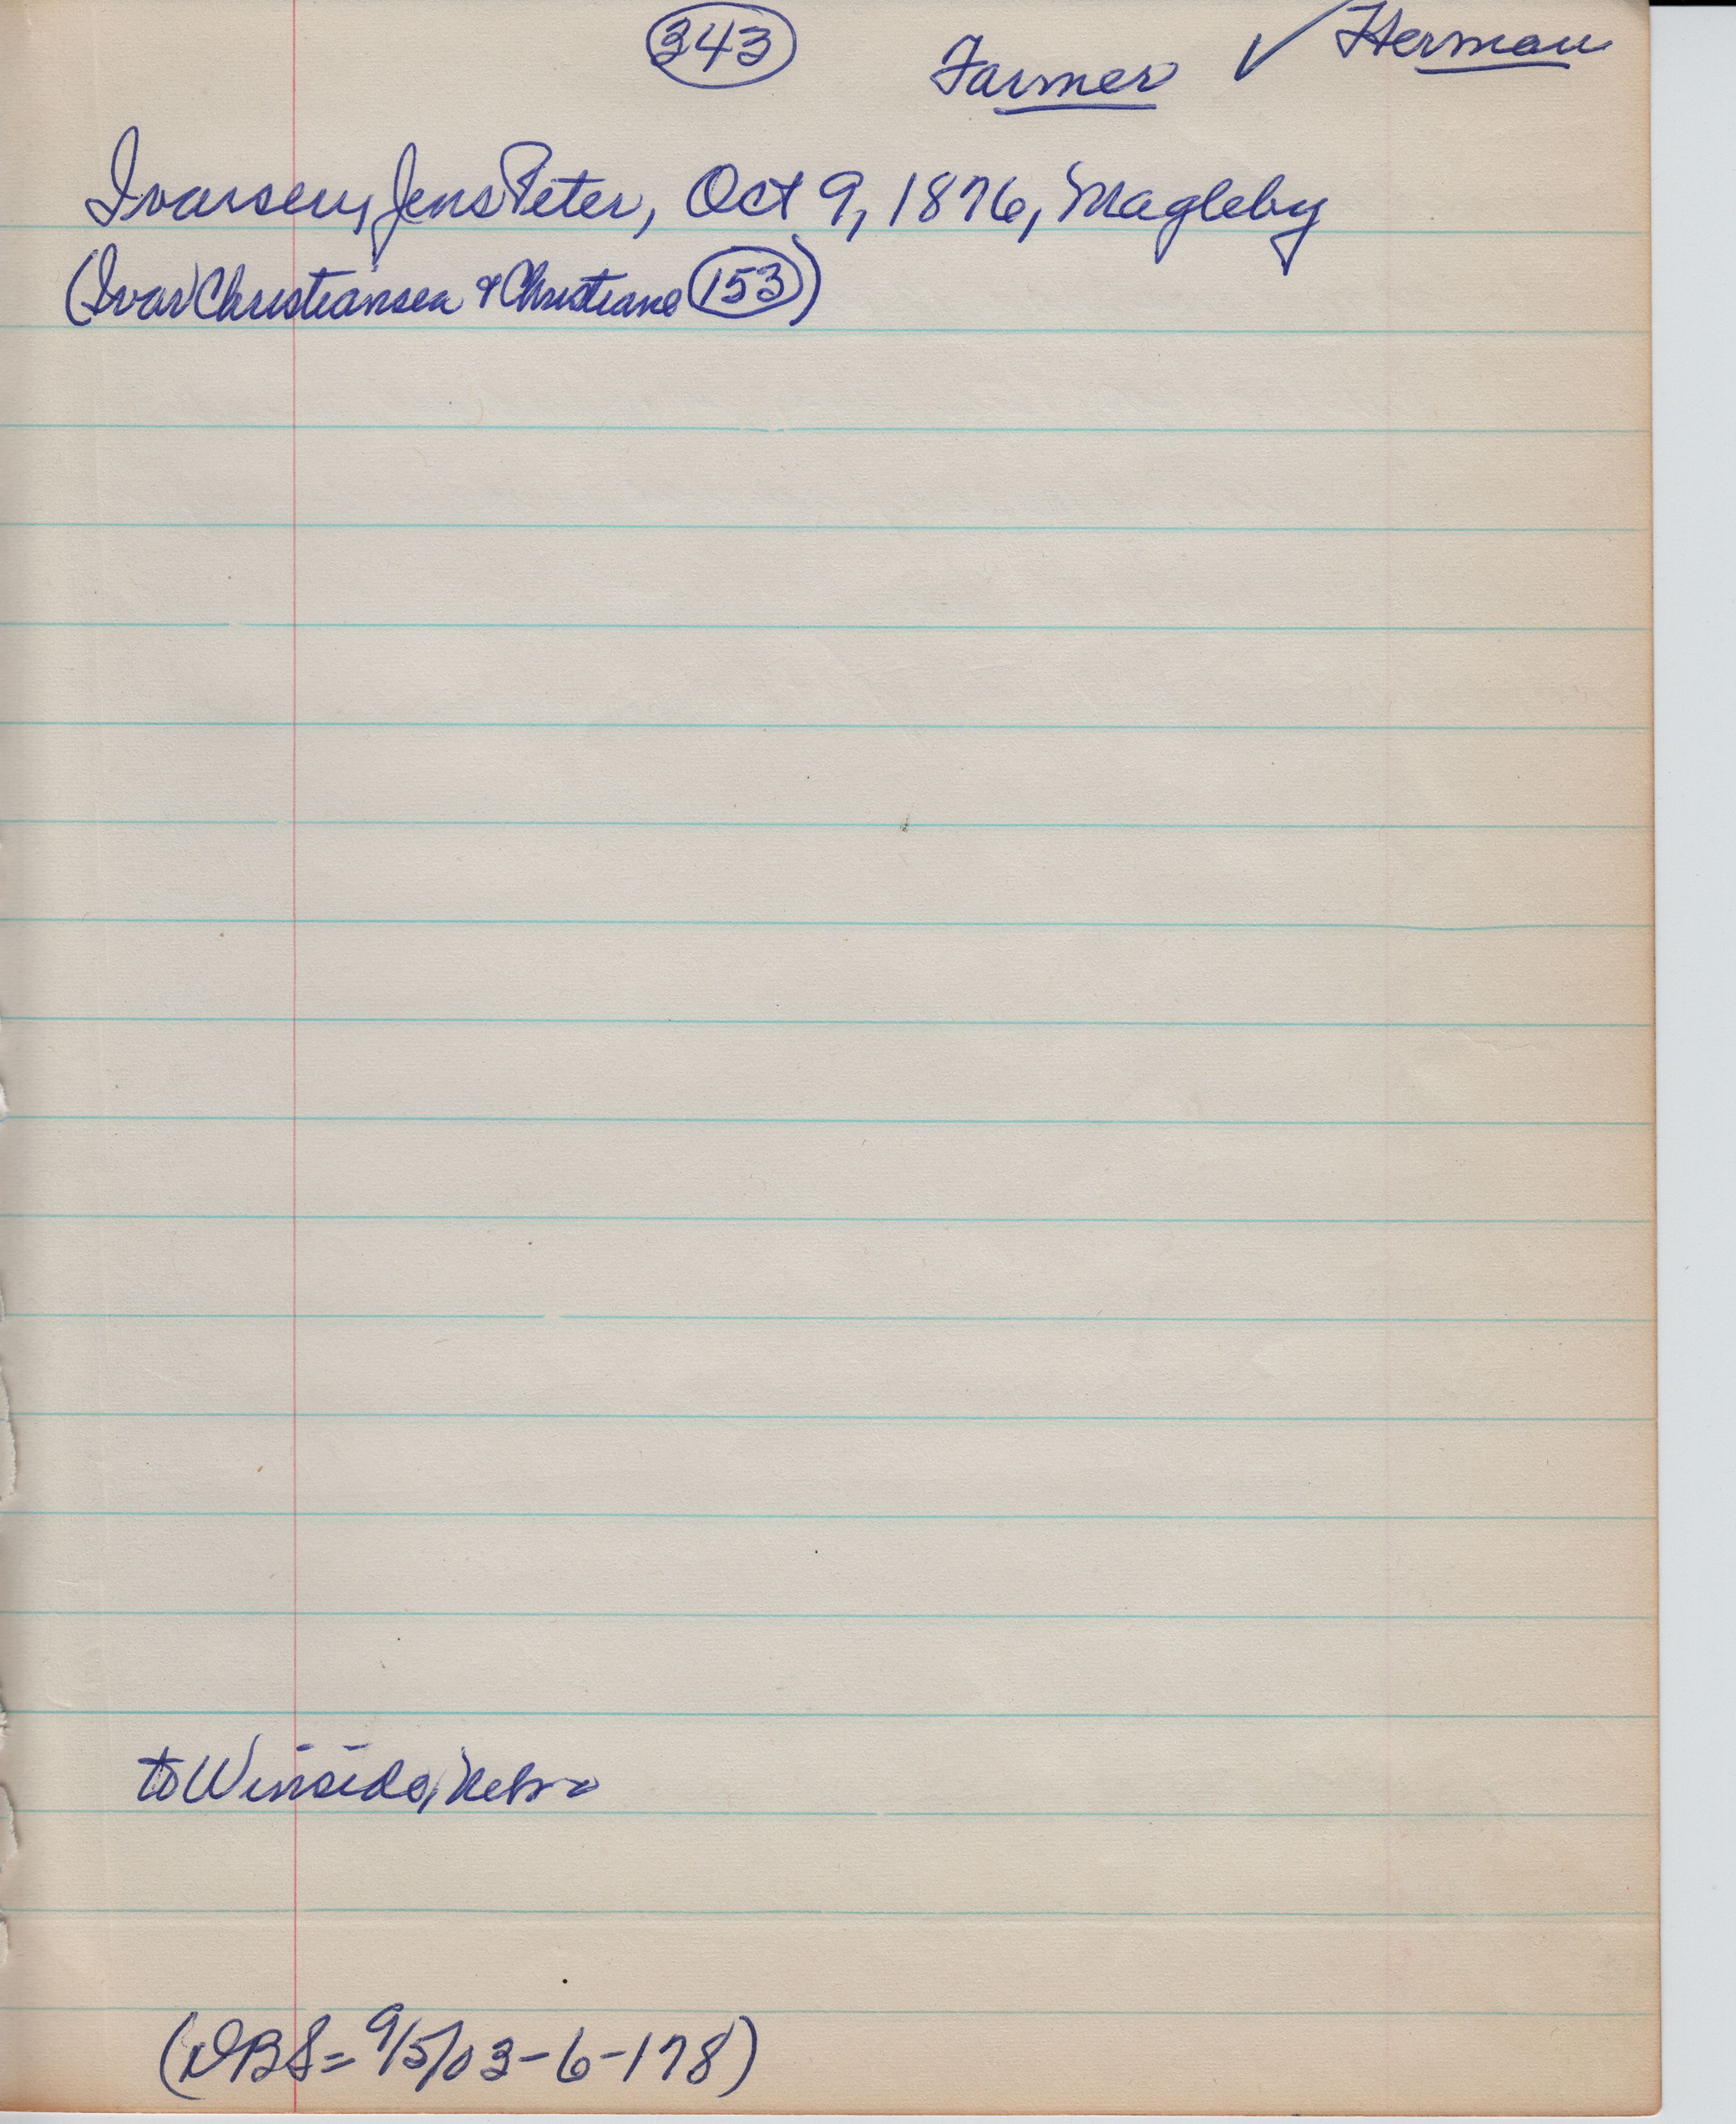 343
Farmer ✓ Herman
Ivarsen, Jens Peter, Oct 9, 1876, Magleby
(Ivar Christiansen & Christiane 153)
to Winside, Nebr
(DBS = 9/5/03-6-178)